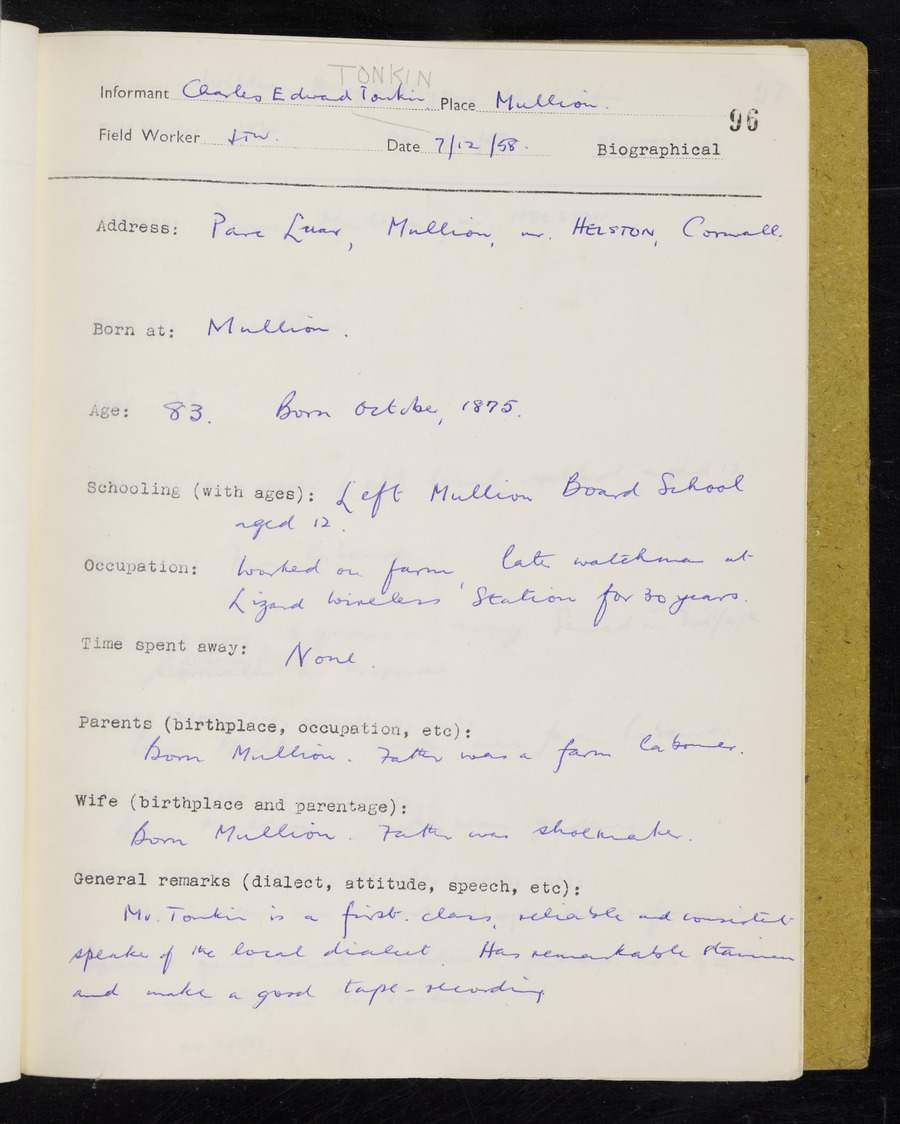 TONKIN
Informant Charles Edward Tonkin Place Mullion.
96
Field Worker Date 7/12/58.
Biographical
Address: Parc Mullion, nr. HELSTON, Cornwall.
Born at: Mullion.
Age: 83. Born October, 1875.
Schooling (with ages): Left Mullion Board School
aged 12.
Occupation: Worked on farm, late watchman at
Lizard Wireless Station for 30 years.
Time spent away: None.
Parents (birthplace, occupation, etc):
Born Mullion. Father was a farm labourer.
Wife (birthplace and parentage):
Born Mullion. Father was shoemaker.
General remarks (dialect, attitude, speech, etc):
Mr. Tonkin is a first-class, reliable and consistent
speaker of the local dialect. Has remarkable stamina
and make a good tape-recording.